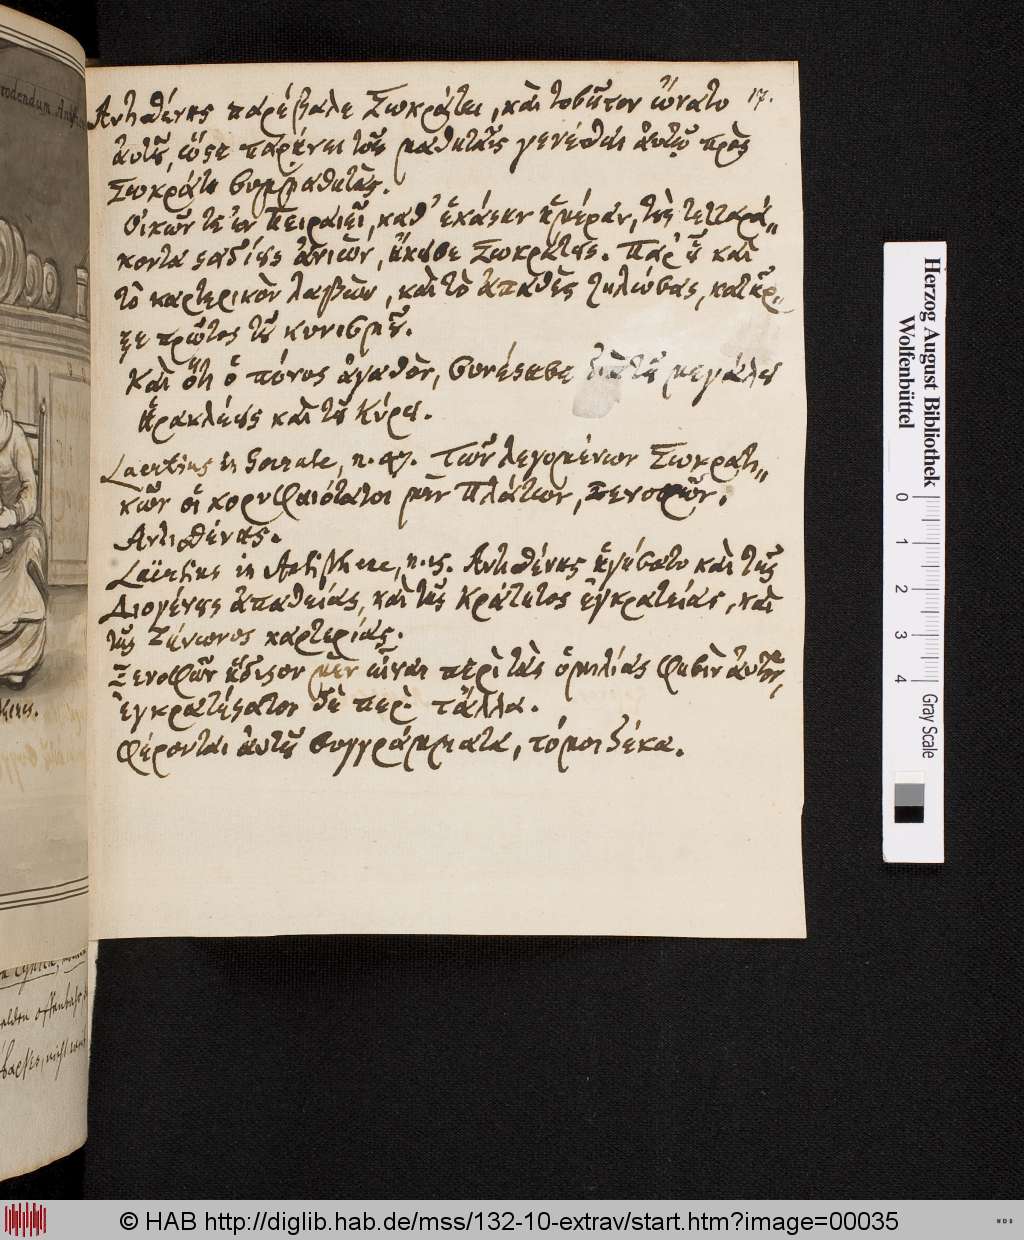 17.
Ἀντισθένης παρέβαλε Σωκράτει, καὶ τοσοῦτον ὤνατο
ἀυτοῦ, ὥστε παρῄνει τοῖς μαθηταῖς γενέσθαι ἀυτῷ πρὸς
Σωκράτη συμμαθητὰς.
Οἰκῶν τε ἐν Πειραιεῖ, καθ᾽ ἑκάστην ἡμέραν, τοὺς τετταρά„
κοντα σταδίους ἀνιὼν, ἤκουσε Σωκράτους. Παρ᾽ οὗ καὶ
τὸ καρτερικὸν λαβὼν, καὶ τὸ ἀπαθὲς ζηλώσας, κατῆρ„
ξε πρῶτος τοῦ κυνισμοῦ.
Καὶ ὅτι ὁ πόνος ἀγαθὸν, συνέστησε διὰ τοῦ μεγάλου
Ἡρακλέους καὶ τοῦ Κύρου.
Laertius in Socrate, n. 47. Τῶν λεγομένων Σωκρατι„
κῶν οἱ κορυφαιότατοι μὲν Πλάτων, Ξενοφῶν,
Ἀντισθένης.
Laërtius in Antisthene, n. 15. Ἀντισθένης ἡγήσατο καὶ τῆς
Διογένους ἀπαθείας, καὶ τῆς Κράτητος ἐγκρατείας, καὶ
τῆς Ζήνωνος καρτερίας.
Ξενοφῶν ἥδιστον μὲν εἶναι περὶ τὰς ὁμιλίας φησὶν ἀυτὸν,
ἐγκρατέστατον δὲ περὶ τἄλλα.
Φέρονται ἀυτοῦ συγγράμματα, τόμοι δέκα.
rodendum
Herzog August Bibliothek
Wolfenbüttel
0 1 2 3 4
Gray Scale
© HAB http://diglib.hab.de/mss/132-10-extrav/start.htm?image=00035